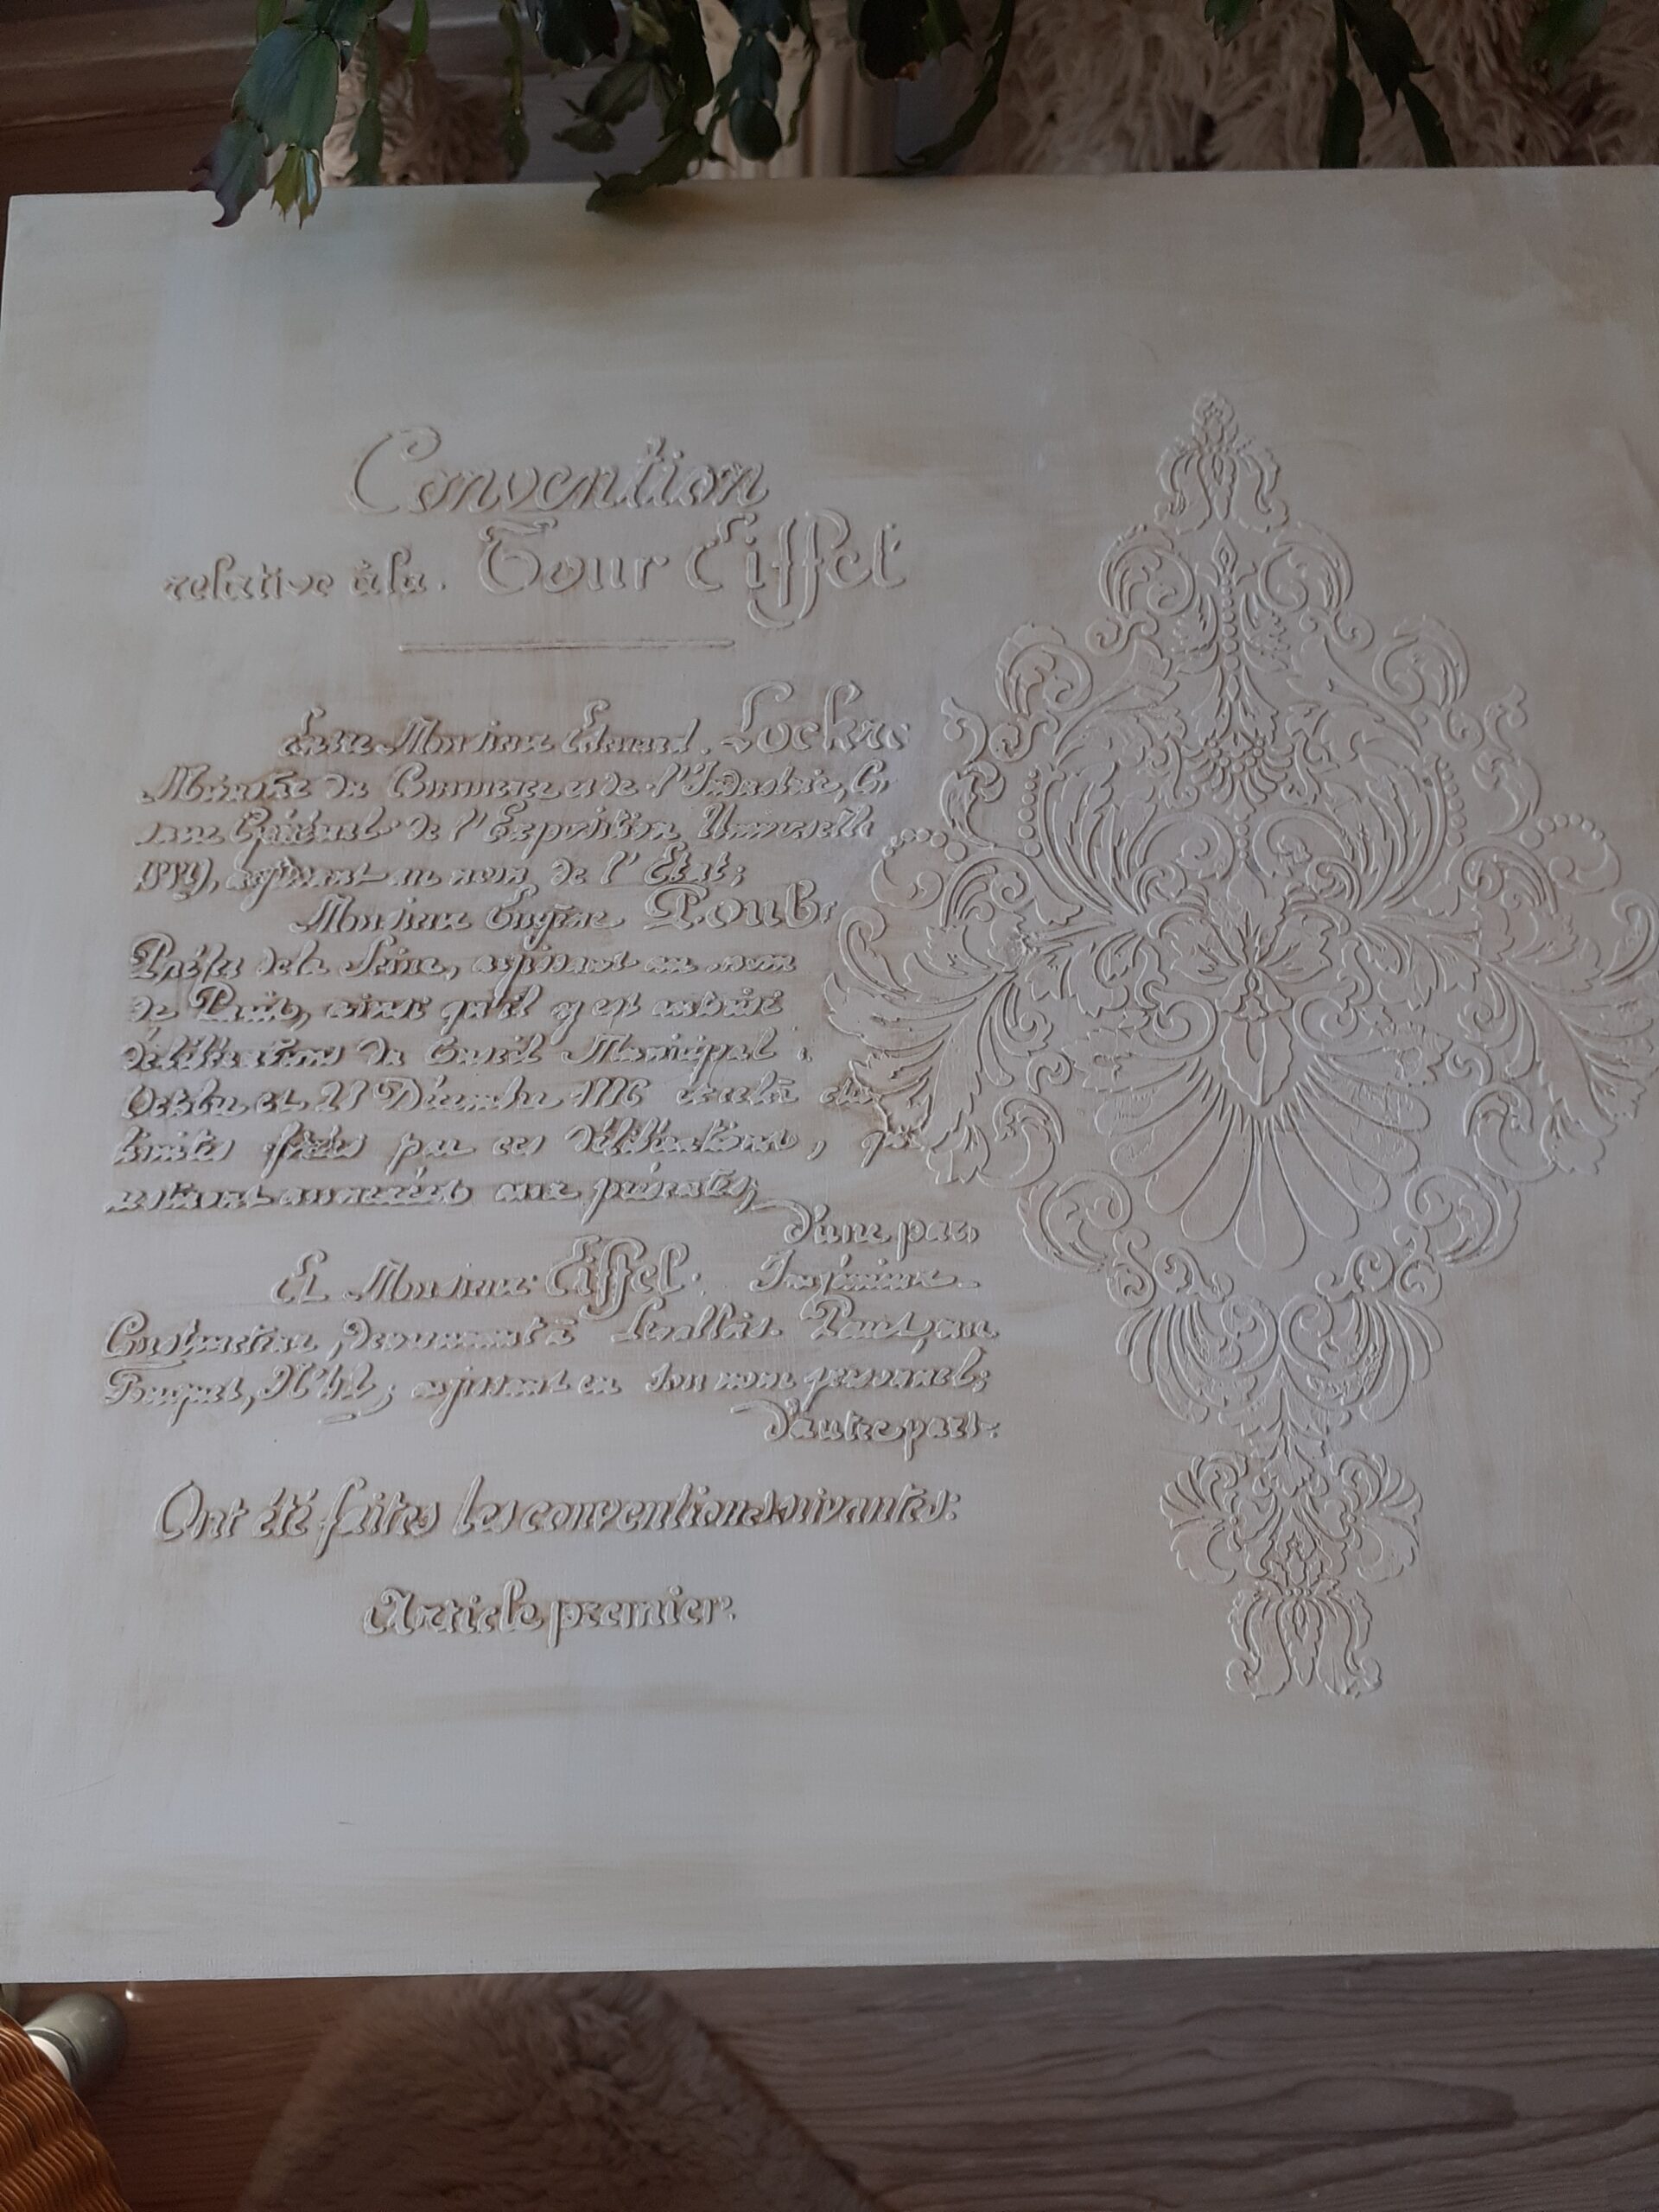 Convention
relative à la. Tour Eiffel
Entre Monsieur Édouard. Lockro
Ministre du Commerce et de l'Industrie, Co
saire Général de l'Exposition Universelle
1889), agissant au nom de l'État;
Monsieur Eugène Poub
Préfet de la Seine, agissant au nom
de Paris, ainsi qu'il y est autorisé
délibérations du Conseil Municipal
Octobre et 28 Décembre 1886 et cela da
limites fixées par ces délibérations, qui
resteront annexées aux présentes;
d'une part,
Et Monsieur Eiffel. Ingénieur
Constructeur, demeurant à Levallois-Perret, rue
Fouquet, agissant en son nom personnel;
d'autre part.
Ont été faites les conventions suivantes:
Article premier.